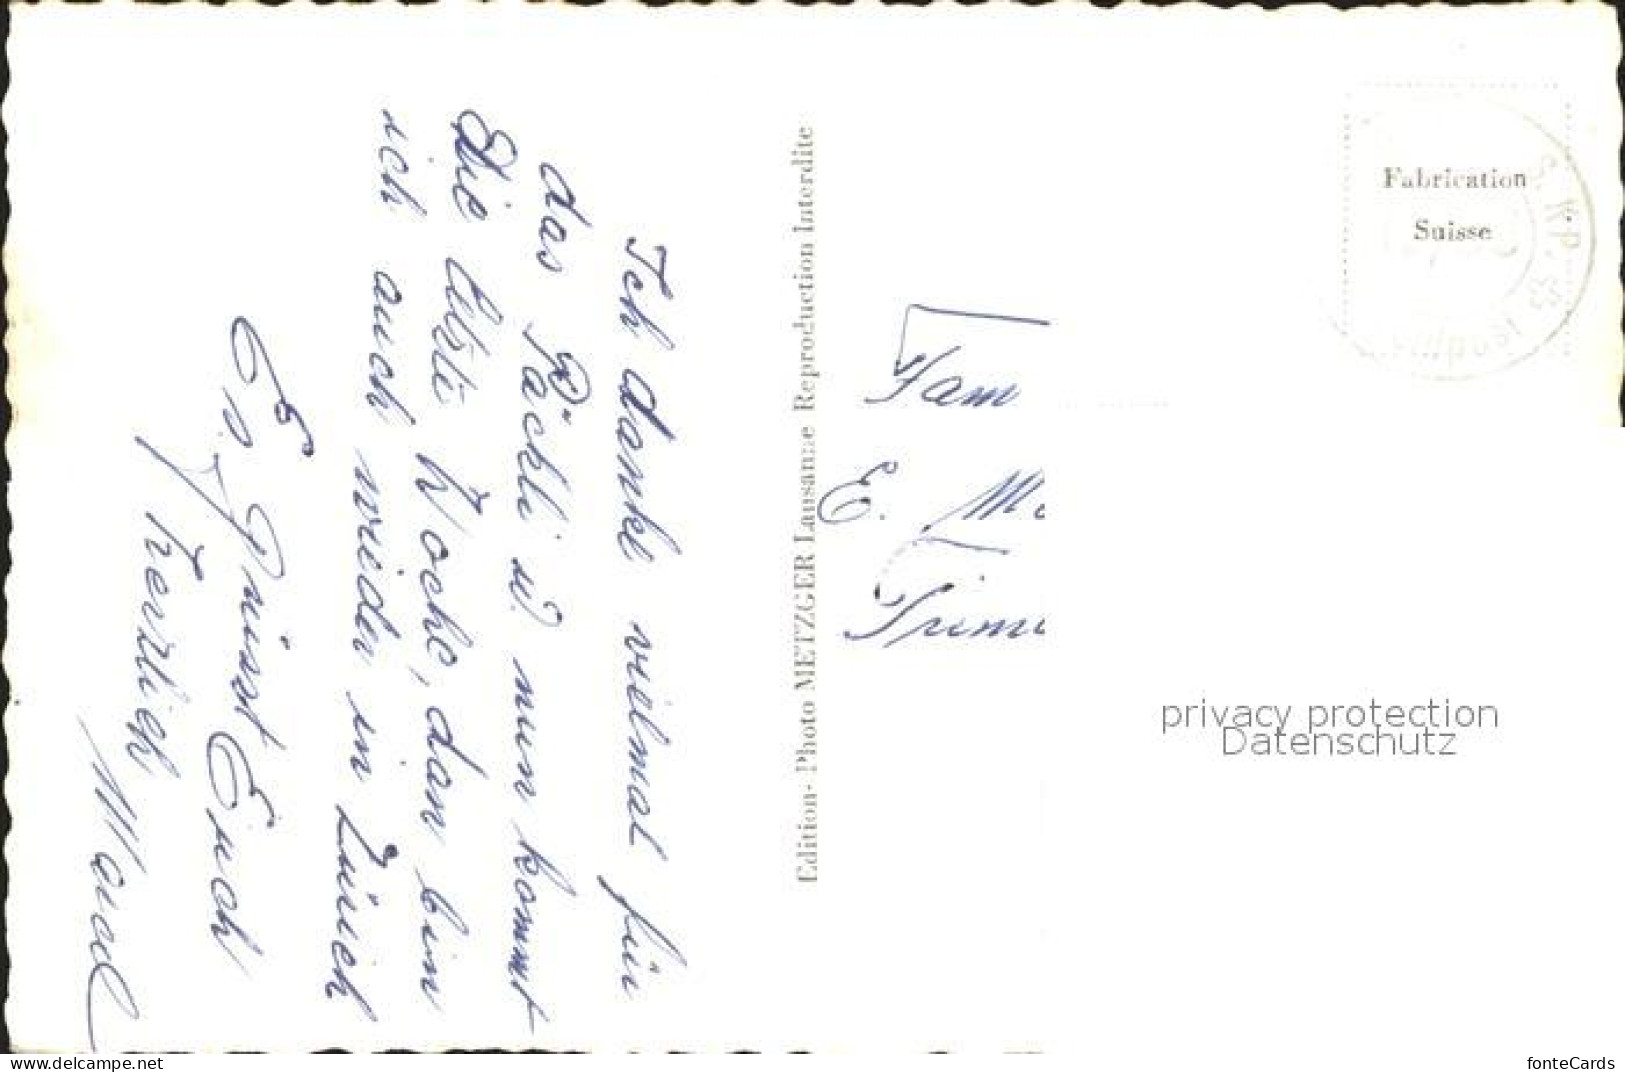 Ich danke vielmal für
das Päckli u. nun kommt
die letzte Woche, dan bin
ich auch wieder in Zürich
Es grüsst Euch
herzlich
Edition-Photo METZGER Lausanne Reproduction Interdite
Fabrication
Suisse
Fam
E. M
privacy protection
Datenschutz
www.delcampe.net
fonteCards